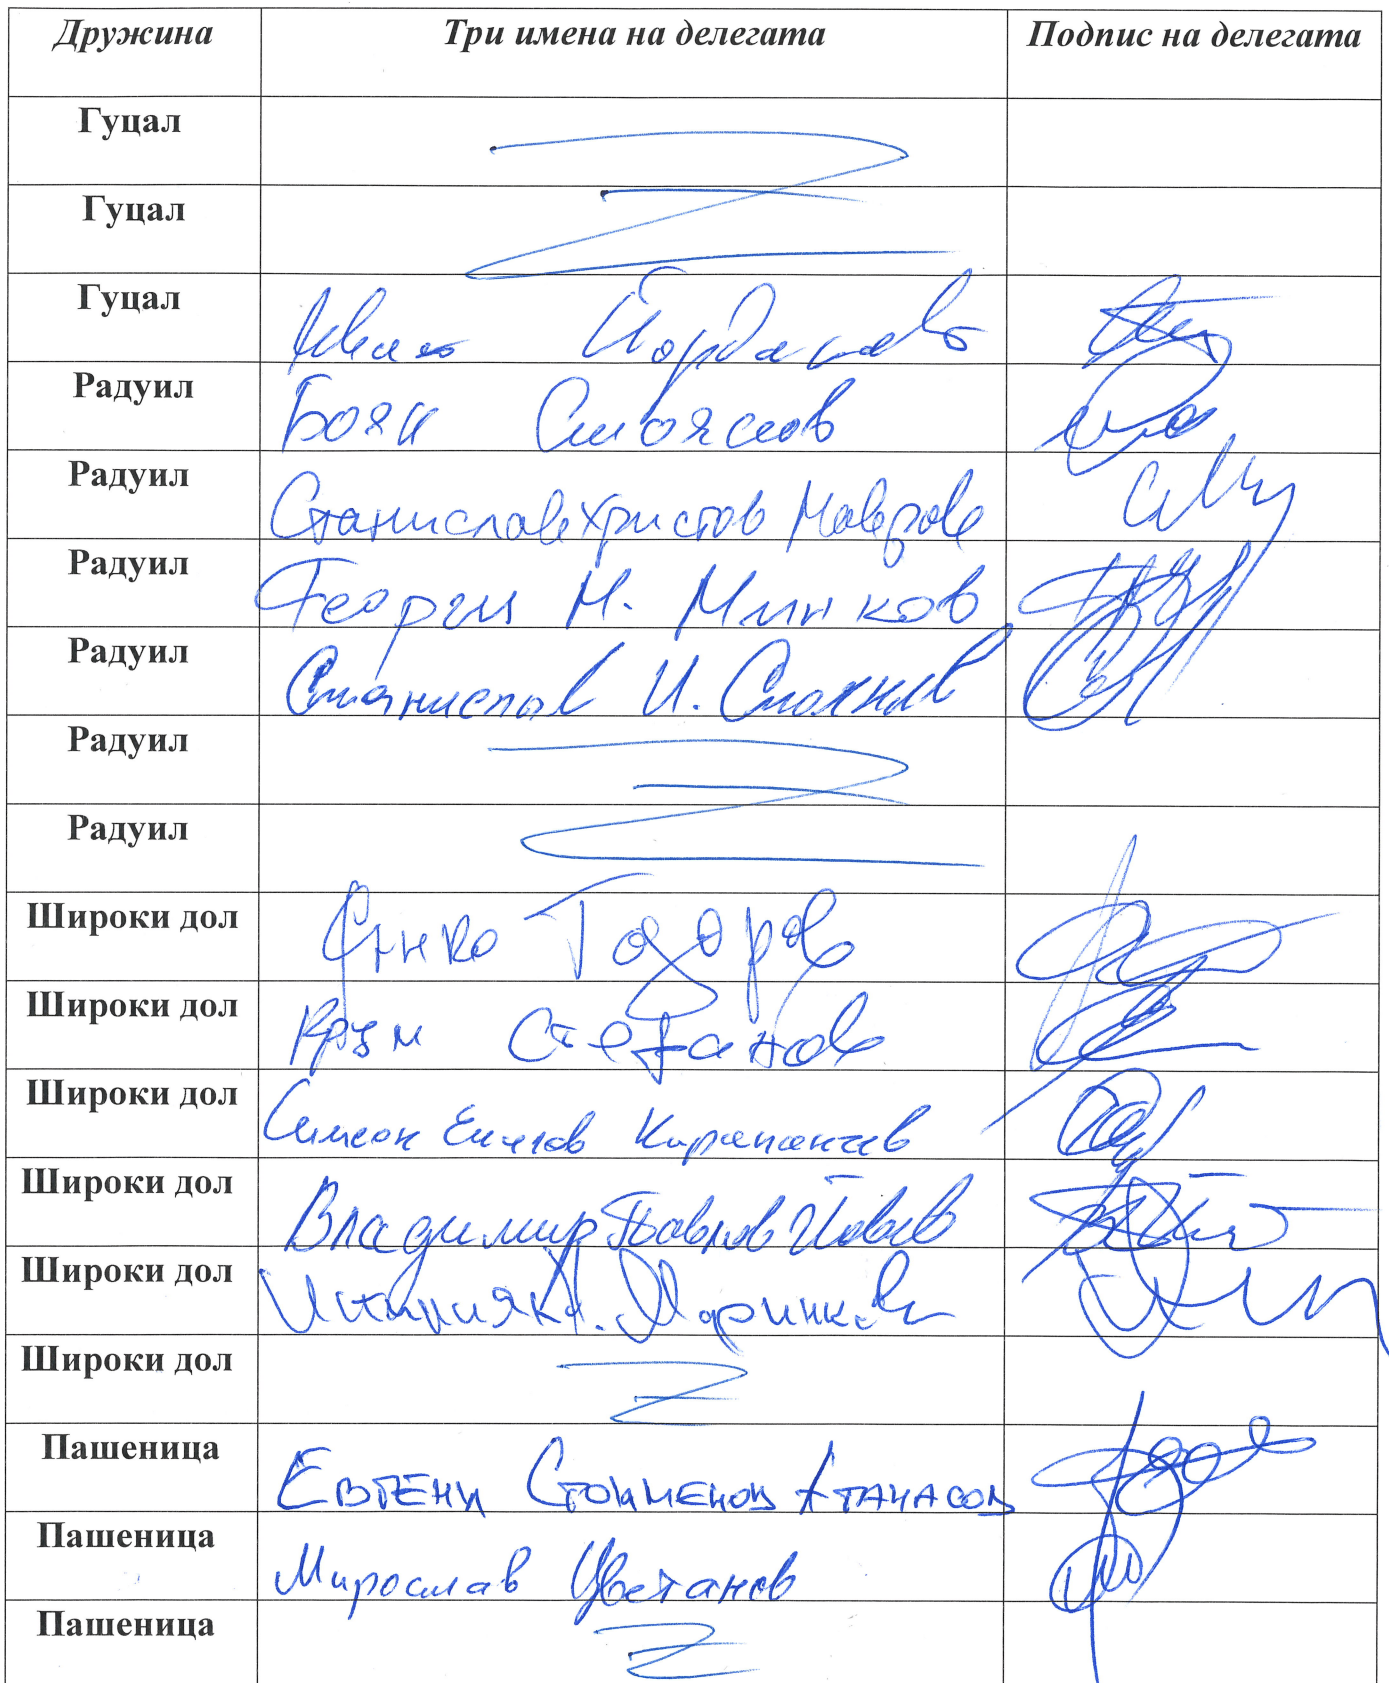 Дружина Три имена на делегата Подпис на делегата
Гуцал
Гуцал
Гуцал Йорданов
Радуил Боян Стоянов
Радуил Станислав Христов Мавров
Радуил Георги Н. Минков
Радуил Станислав И. Стоянов
Радуил
Радуил
Широки дол Янко Тодоров
Широки дол Крум Стефанов
Широки дол Симеон Енчов
Широки дол Владимир Павлов Йовов
Широки дол Маринков
Широки дол
Пашеница Евгени Стоименов Атанасов
Пашеница Мирослав Цветанов
Пашеница